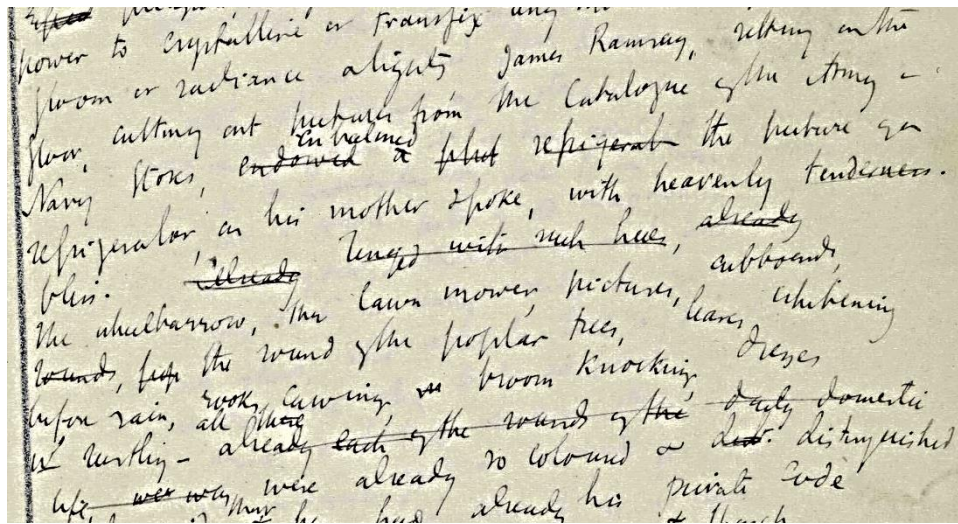 power to crystallise or transfix any
gloom or radiance alights James Ramsay, sitting on the
floor, cutting out pictures from the Catalogue of the Army &
Navy Stores, endowed a refrigerat the picture of a
refrigerator, as his mother spoke, with heavenly tenderness.
bliss. already tinged with such hues, already
The wheelbarrow, the lawn mower, pictures, cupboards,
sounds, the sound of the poplar trees, leaves, whitening
before rain, rooks cawing, broom knocking, dresses
rustling - already all these each of the sounds of the daily domestic
life, were already so coloured & distinguished
he had already his private code